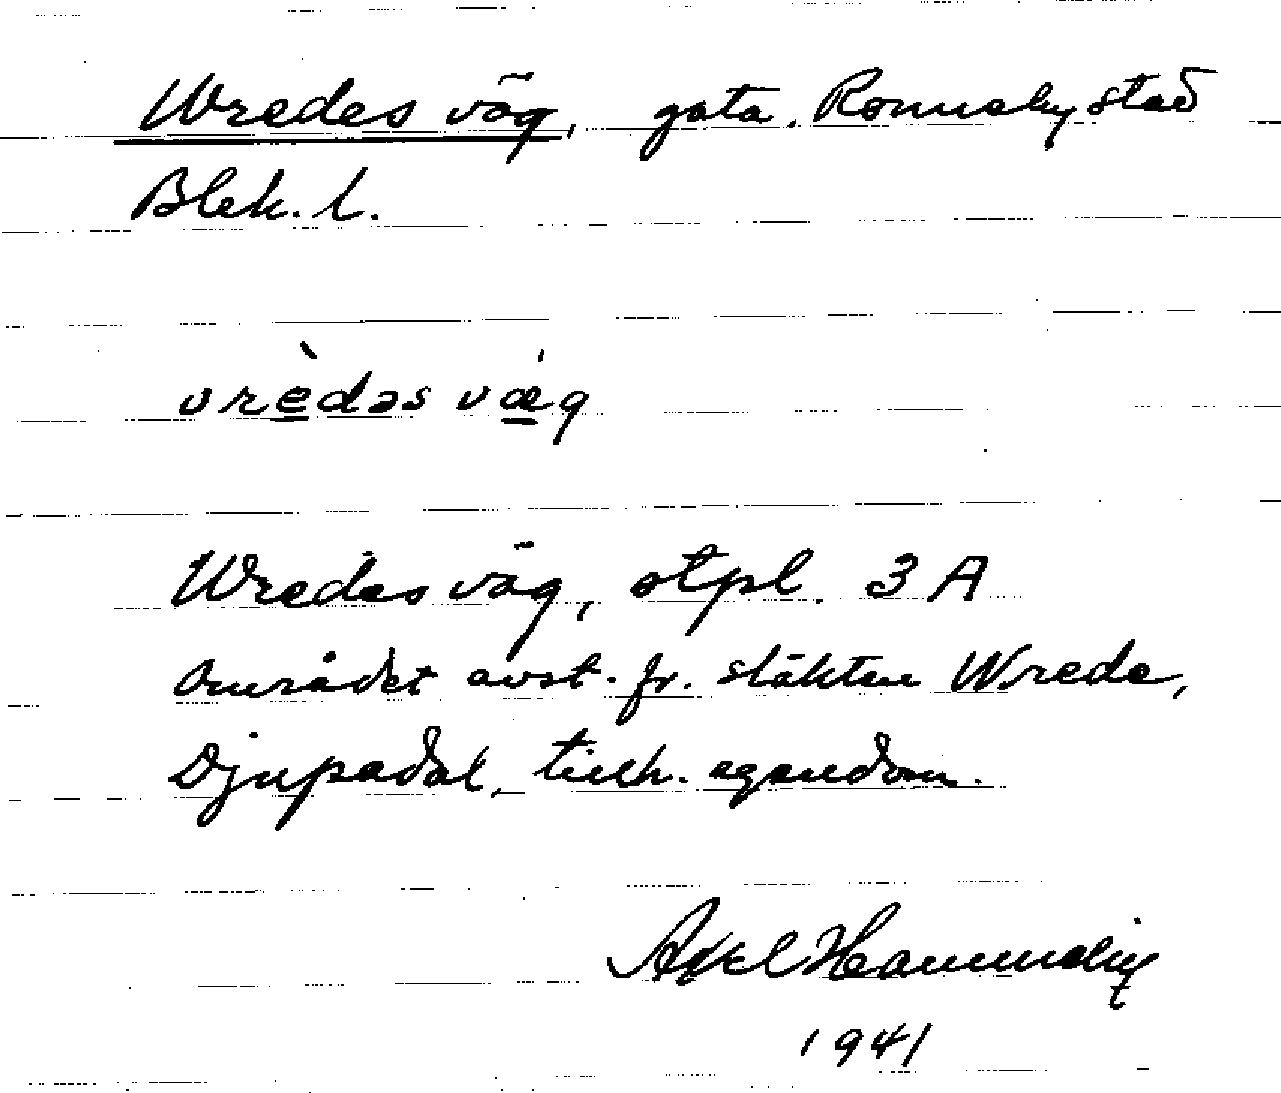 Wredes väg, gata, Ronneby stad
Blek. l.
vrèdəs vǽg
Wredes väg, stpl. 3 A
Området avst. fr. släkten Wrede,
Djupadal, tillh. egendom.
Axel
1941